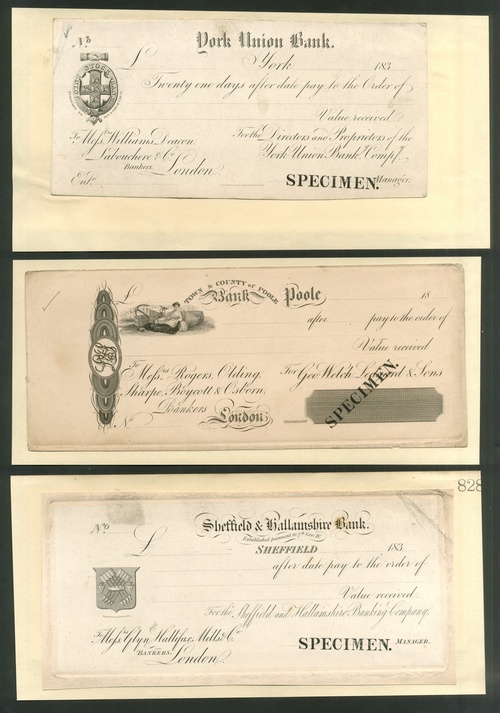 York Union Bank.
No
£
York 183
Twenty one days after date pay to the Order of
Value received
To Messrs. Williams Deacon
Labouchere & Co.
Bankers London
For the Directors and Proprietors of the
York Union Bankg. Compy.
Entd.
SPECIMEN.
Manager.
£
TOWN & COUNTY of POOLE
Bank
Poole
18
after pay to the order of
Value received
To
Messrs. Rogers, Olding,
Sharpe, Boycott & Osborn,
Bankers
London
For Geo. Welch Ledgard & Sons
SPECIMEN.
No
828
No
Sheffield & Hallamshire Bank.
Established pursuant to 7th Geo. IV.
£
SHEFFIELD 183
after date pay to the order of
Value received
For the Sheffield and Hallamshire Banking Company.
To Messrs. Glyn Hallifax, Mills & Co.
BANKERS.
London
SPECIMEN.
MANAGER.